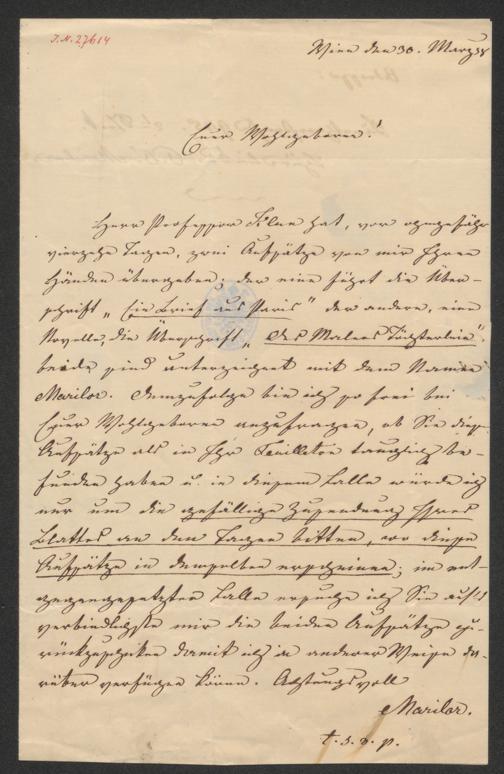 J.N. 27614
Wien den 30. März
Euer Wohlgeboren!
Herr Professor hat, vor ohngefähr
vierzehn Tagen, zwei Aufsätze von mir Ihren
Händen übergeben; der eine führt die Über-
schrift „Ein Brief aus Paris" der andere, eine
Novelle, die Überschrift „Des Malers Töchterlein".
beide sind unterzeichnet mit dem Namen
Marilor. Demzufolge bin ich so frei bei
Euer Wohlgeboren anzufragen, ob Sie diese
Aufsätze als in Ihr Feuilleton tauglich be-
funden haben u. in diesem Falle würde ich
nur um die gefällige Zusendung Ihres
Blattes an den Tagen bitten, wo diese
Aufsätze in demselben erscheinen; im ent-
gegengesetzten Falle ersuche ich Sie aufs
verbindlichste mir die beiden Aufsätze zu-
rückzuschicken damit ich in anderer Weise da-
rüber verfügen könne. Achtungsvoll
Marilor.
t. s. v. p.